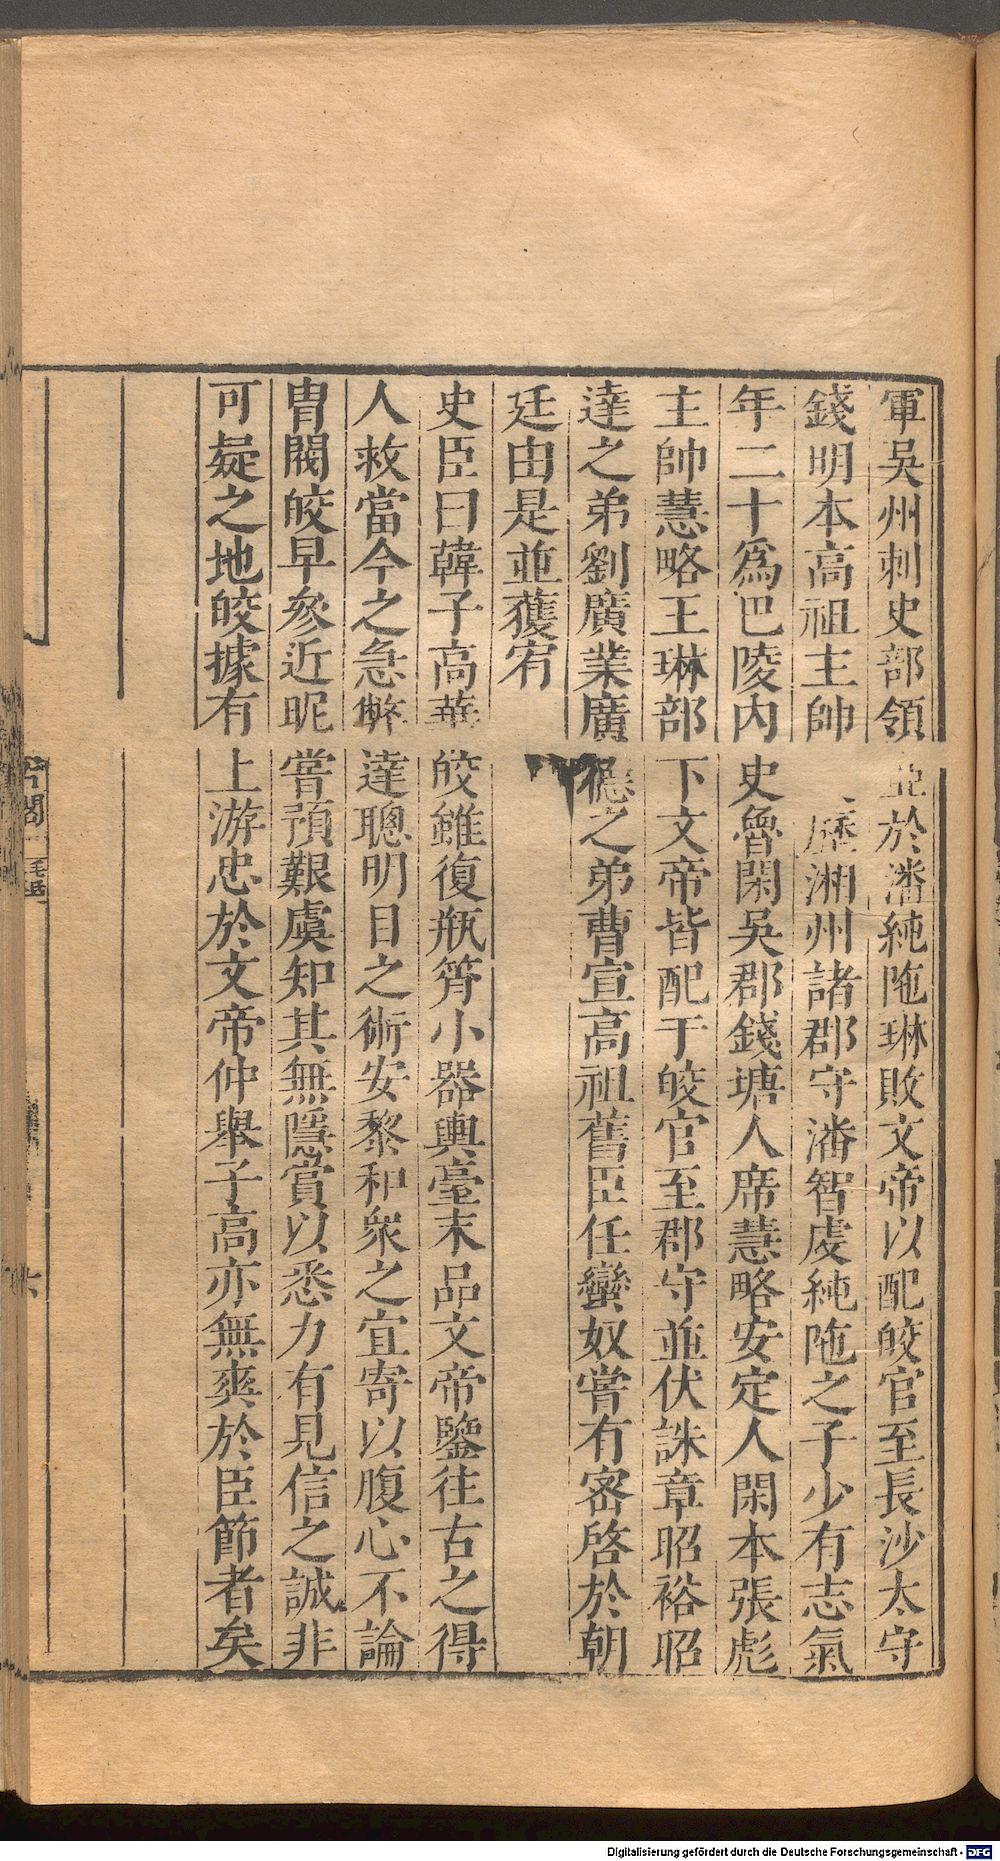 軍吳州刺史部領亞於潘純陁琳敗文帝以配皎官至長沙太守
錢明本高祖主帥歷湘州諸郡守潘智虔純陁之子少有志氣
年二十爲巴陵内史魯閑吳郡錢塘人席慧略安定人閑本張彪
主帥慧略王琳部下文帝皆配于皎官至郡守並伏誅章昭裕昭
達之弟劉廣業廣德之弟曹宣高祖舊臣任蠻奴嘗有密啓於朝
廷由是並獲宥
史臣曰韓子高華皎雖復瓶筲小器輿臺末品文帝鑒往古之得
人救當今之急弊達聰明目之術安黎和衆之宜寄以腹心不論
胄閥皎早參近昵嘗預艱虞知其無隱賞以悉力有見信之誠非
可疑之地皎據有上游忠於文帝仲舉子高亦無爽於臣節者矣
Digitalisierung gefördert durch die Deutsche Forschungsgemeinschaft - DFG